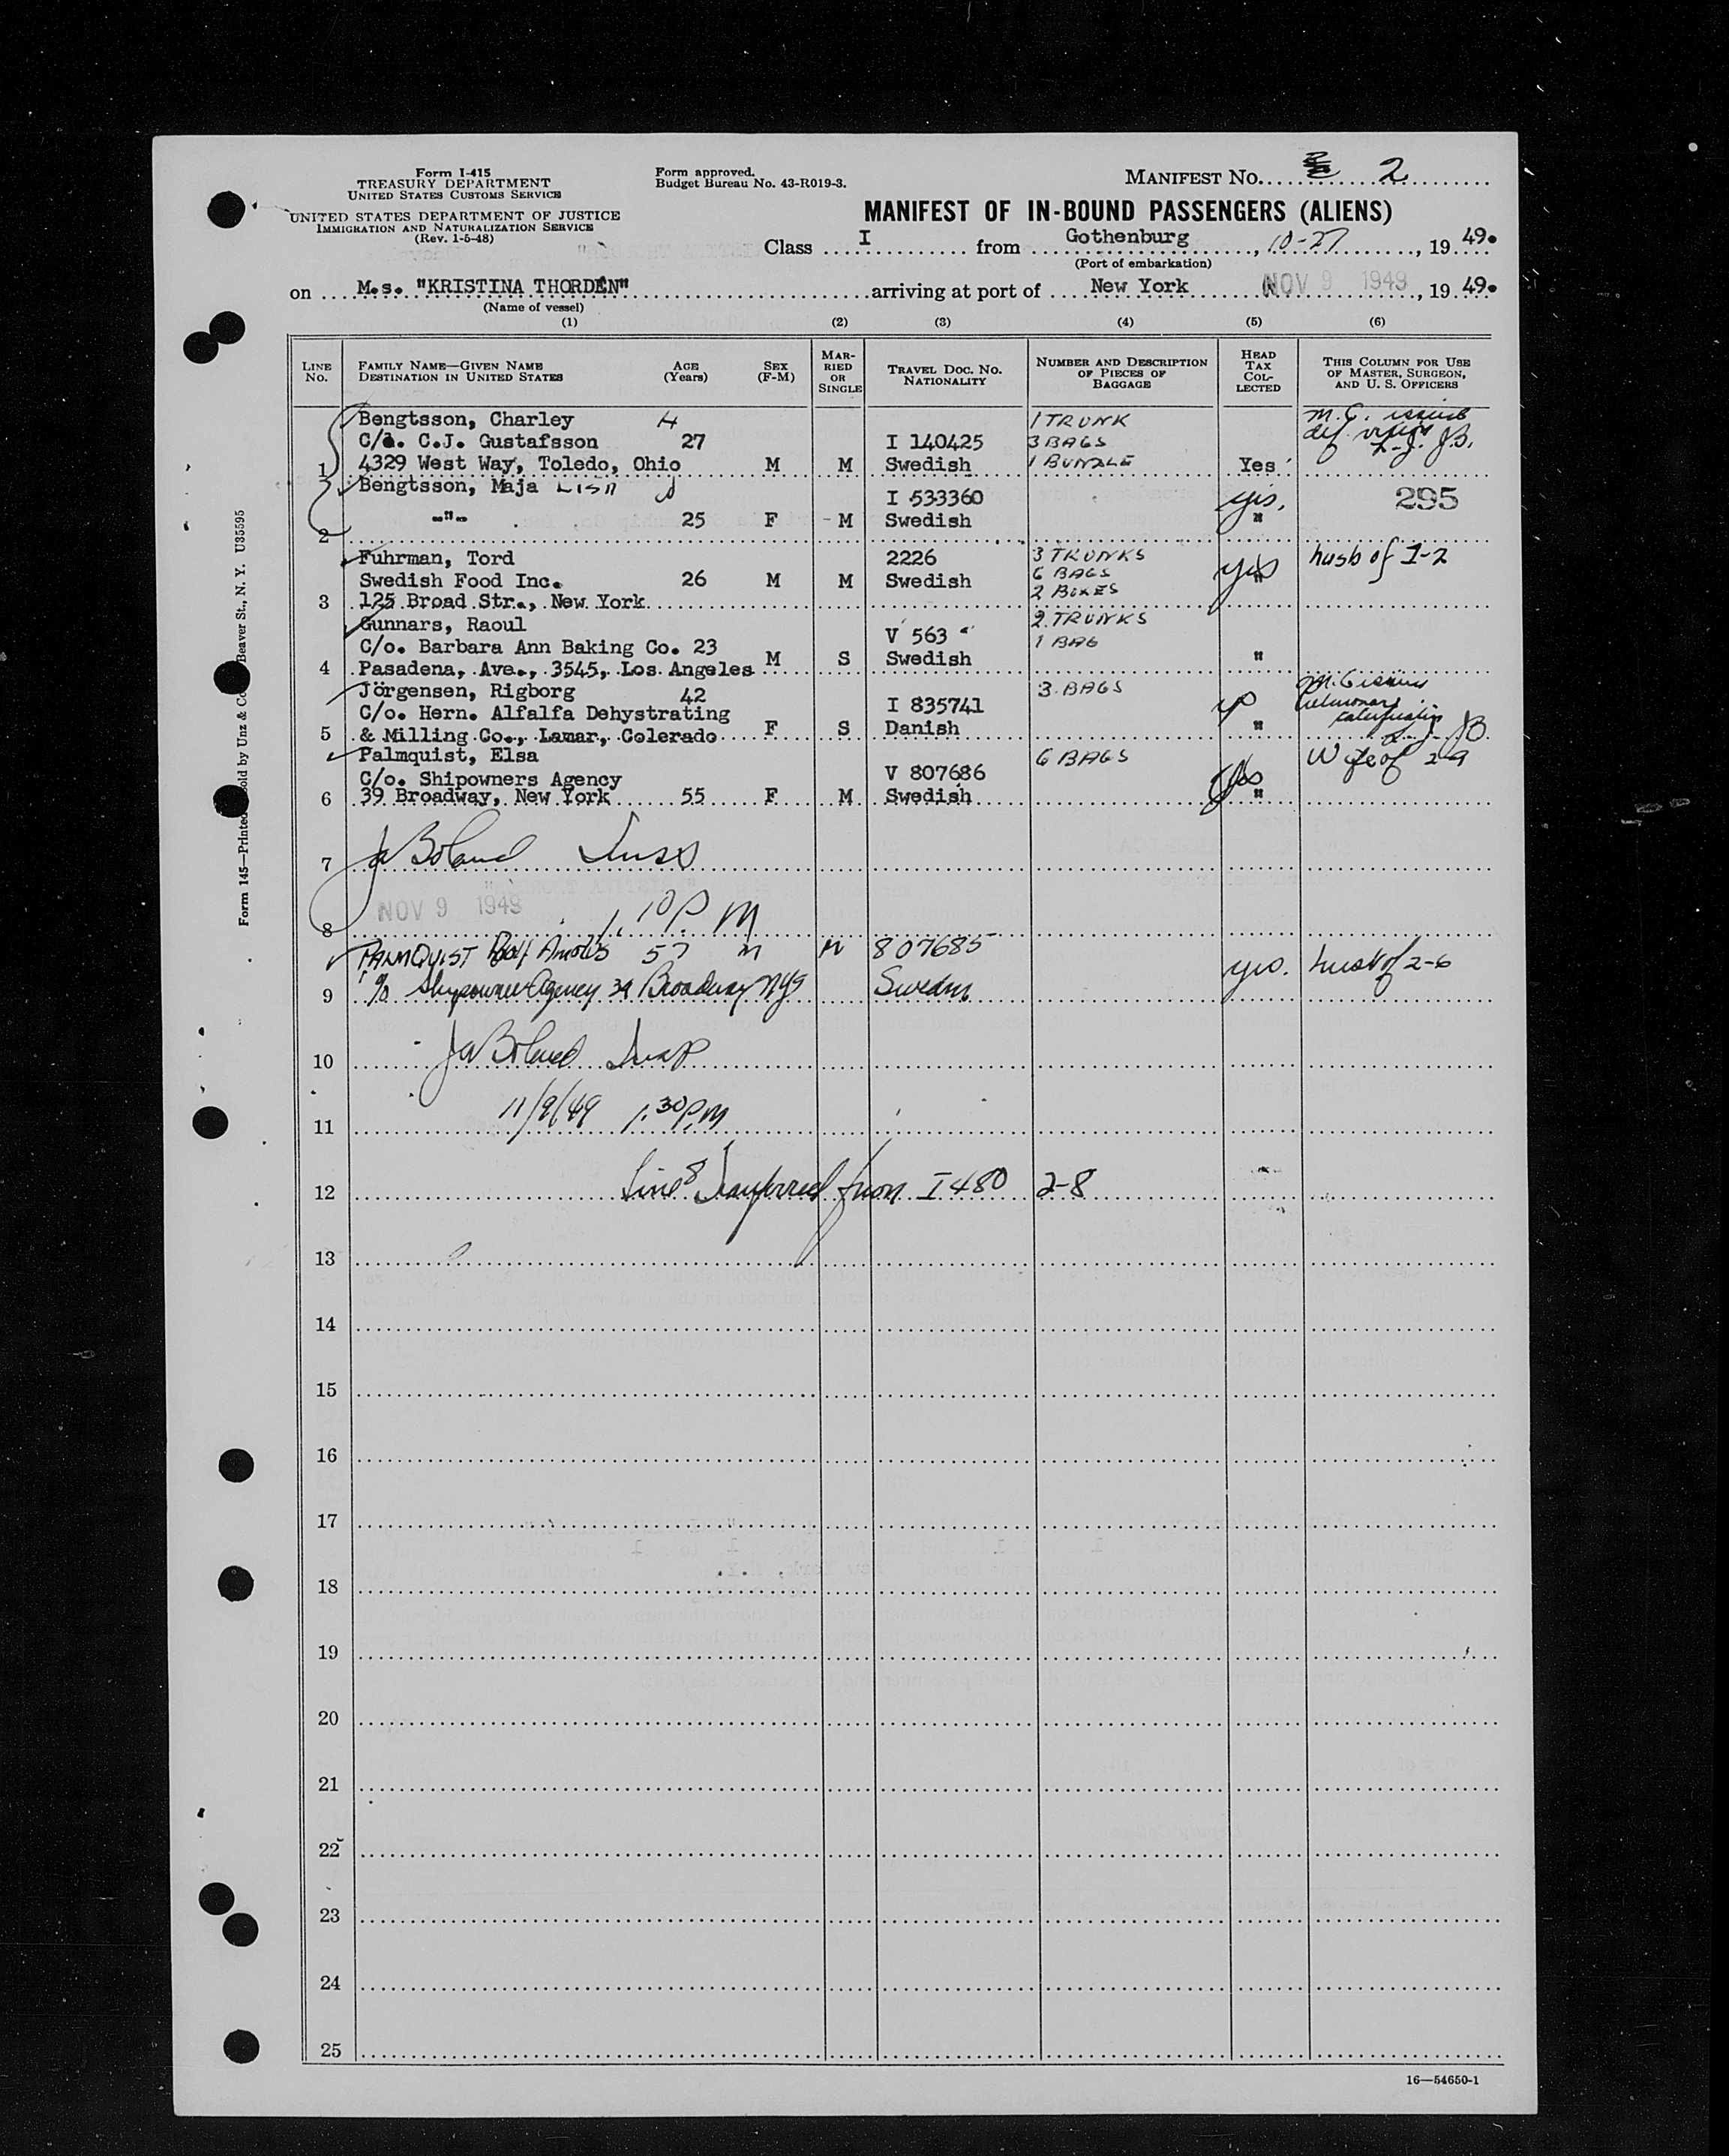 Form I-415
TREASURY DEPARTMENT
UNITED STATES CUSTOMS SERVICE
UNITED STATES DEPARTMENT OF JUSTICE
IMMIGRATION AND NATURALIZATION SERVICE
(Rev. 1-5-48)
Form approved.
Budget Bureau No. 43-R019-3.
MANIFEST NO. 2
MANIFEST OF IN-BOUND PASSENGERS (ALIENS)
Class I from Gothenburg, 10-27, 19 49.
(Port of embarkation)
on M.s. "KRISTINA THORDÉN" arriving at port of New York NOV 9 1949, 19 49.
(Name of vessel)
(1) (2) (3) (4) (5) (6)
LINE NO.
FAMILY NAME—GIVEN NAME
DESTINATION IN UNITED STATES
AGE (Years)
SEX (F-M)
MARRIED OR SINGLE
TRAVEL DOC. NO. NATIONALITY
NUMBER AND DESCRIPTION OF PIECES OF BAGGAGE
HEAD TAX COLLECTED
THIS COLUMN FOR USE OF MASTER, SURGEON, AND U. S. OFFICERS
Bengtsson, Charley H 1 TRUNK M.C. issued
C/o. C.J. Gustafsson 27 I 140425 3 BAGS def vision J.B.
1 4329 West Way, Toledo, Ohio M M Swedish 1 BUNDLE Yes
Bengtsson, Maja LISA I 533360 yes. 295
2 -"- 25 F M Swedish "
Fuhrman, Tord 2226 3 TRUNKS husb of 1-2
Swedish Food Inc. 26 M M Swedish 6 BAGS yes "
3 125 Broad Str., New York 2 BOXES
Gunnars, Raoul 2 TRUNKS
C/o. Barbara Ann Baking Co. 23 V 563 1 BAG
4 Pasadena, Ave., 3545, Los Angeles M S Swedish "
Jörgensen, Rigborg 42 I 835741 3 BAGS M.C issued
C/o. Hern. Alfalfa Dehystrating pulmonary calcification
5 & Milling Co., Lamar, Colerado F S Danish " JB
Palmquist, Elsa 6 BAGS Wife of 2-9
C/o. Shipowners Agency V 807686 yes
6 39 Broadway, New York 55 F M Swedish "
7 JaBoland Insp
NOV 9 1949
8 1.10 P.M
PALMQUIST 57 M M 807685 yes. husb of 2-6
9 c/o Shipowners Agency 39 Broadway NYC Sweden
10 JaBoland Insp
11 11/9/49 1.30 P.M
12 Line 8 Transferred from I 480 2-8
13
14
15
16
17
18
19
20
21
22
23
24
25
16—54650-1
Form 145—Printed Sold by Unz & Co Beaver St., N. Y. U35595